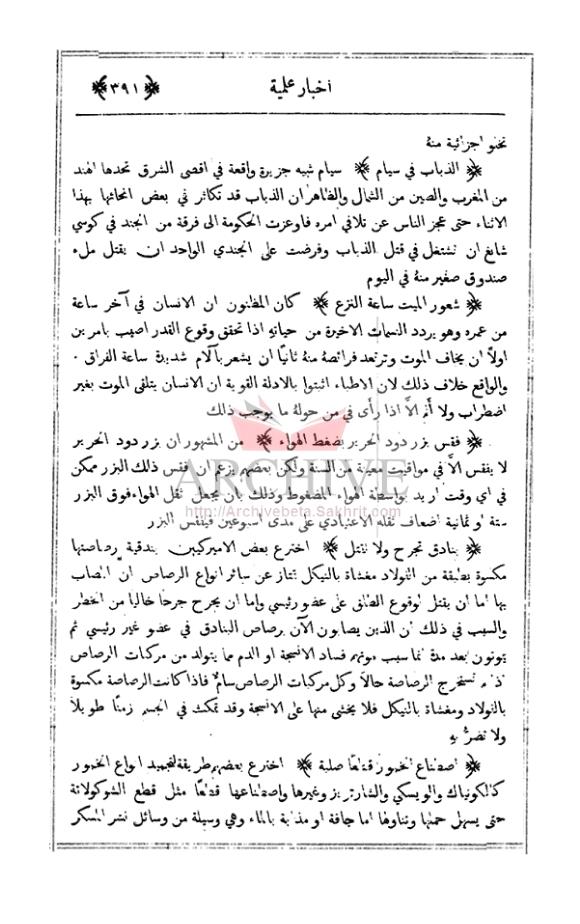 أخبار علمية ﴿٣٩١﴾
تخلو اجزائية منهُ
﴿ الذباب في سيام ﴾ سيام شبه جزيرة واقعة في اقصى الشرق تحدها الهند
من المغرب والصين من الشمال والظاهر ان الذباب قد تكاثر في بعض انحائها بهذا
الاثناء حتى عجز الناس عن تلافي امره فاوعزت الحكومة الى فرقة من الجند في كوسي
شايغ ان تشتغل في قتل الذباب وفرضت على الجندي الواحد ان يقتل ملء
صندوق صغير منهُ في اليوم
﴿ شعور الميت ساعة النزع ﴾ كان المظنون ان الانسان في آخر ساعة
من عمره وهو يردد النسمات الاخيرة من حياته اذا تحقق وقوع القدر اصيب بامرين
اولاً ان يخاف الموت وترتعد فرائصهُ منهُ ثانياً ان يشعر بآلام شديدة ساعة الفراق .
والواقع خلاف ذلك لان الاطباء اثبتوا بالادلة القوية ان الانسان يتلقى الموت بغير
اضطراب ولا ألم الاَّ اذا رأى في من حولهُ ما يوجب ذلك
﴿ فقس بزر دود الحرير بضغط الهواء ﴾ من المشهور ان بزر دود الحرير
لا ينقس الاَّ في مواقيت معينة من السنة ولكن بعضهم يزعم ان فقس ذلك البزر ممكن
في اي وقت اريد بواسطة الهواء المضغوط وذلك بان يجعل ثقل الهواء فوق البزر
ستة او ثمانية اضعاف ثقله الاعتيادي على مدى اسبوعين فينقس البزر
﴿ بنادق تجرح ولا تقتل ﴾ اخترع بعض الاميركيين بندقية رصاصتها
مكسوة بطبقة من الفولاد مغشاة بالنيكل تمتاز عن سائر انواع الرصاص ان المصاب
بها اما ان يقتل لوقوع الطلق على عضو رئيسي واما ان يجرح جرحاً خالياً من الخطر
والسبب في ذلك ان الذين يصابون الآن برصاص البنادق في عضو غير رئيسي ثم
يموتون بعد مدة انما سبب موتهم فساد الانسجة او الدم مما يتولد من مركبات الرصاص
اذا لم تستخرج الرصاصة حالاً وكل مركبات الرصاص سامٌّ فاذا كانت الرصاصة مكسوة
بالفولاد ومغشاة بالنيكل فلا يخشى منها على الانسجة وقد تمكث في الجسم زمناً طويلاً
ولا تضرُّ به
﴿ اصطناع الخمور قطعاً صلبة ﴾ اخترع بعضهم طريقة لتجميد انواع الخمور
كالكونياك والويسكي والشارتريز وغيرها واصطناعها قطعاً مثل قطع الشوكولاتة
حتى يسهل حملها وتناولها اما جافة او مذابة بالماء وهي وسيلة من وسائل نشر المسكر
ARCHIVE
http://Archivebeta.Sakhrit.com